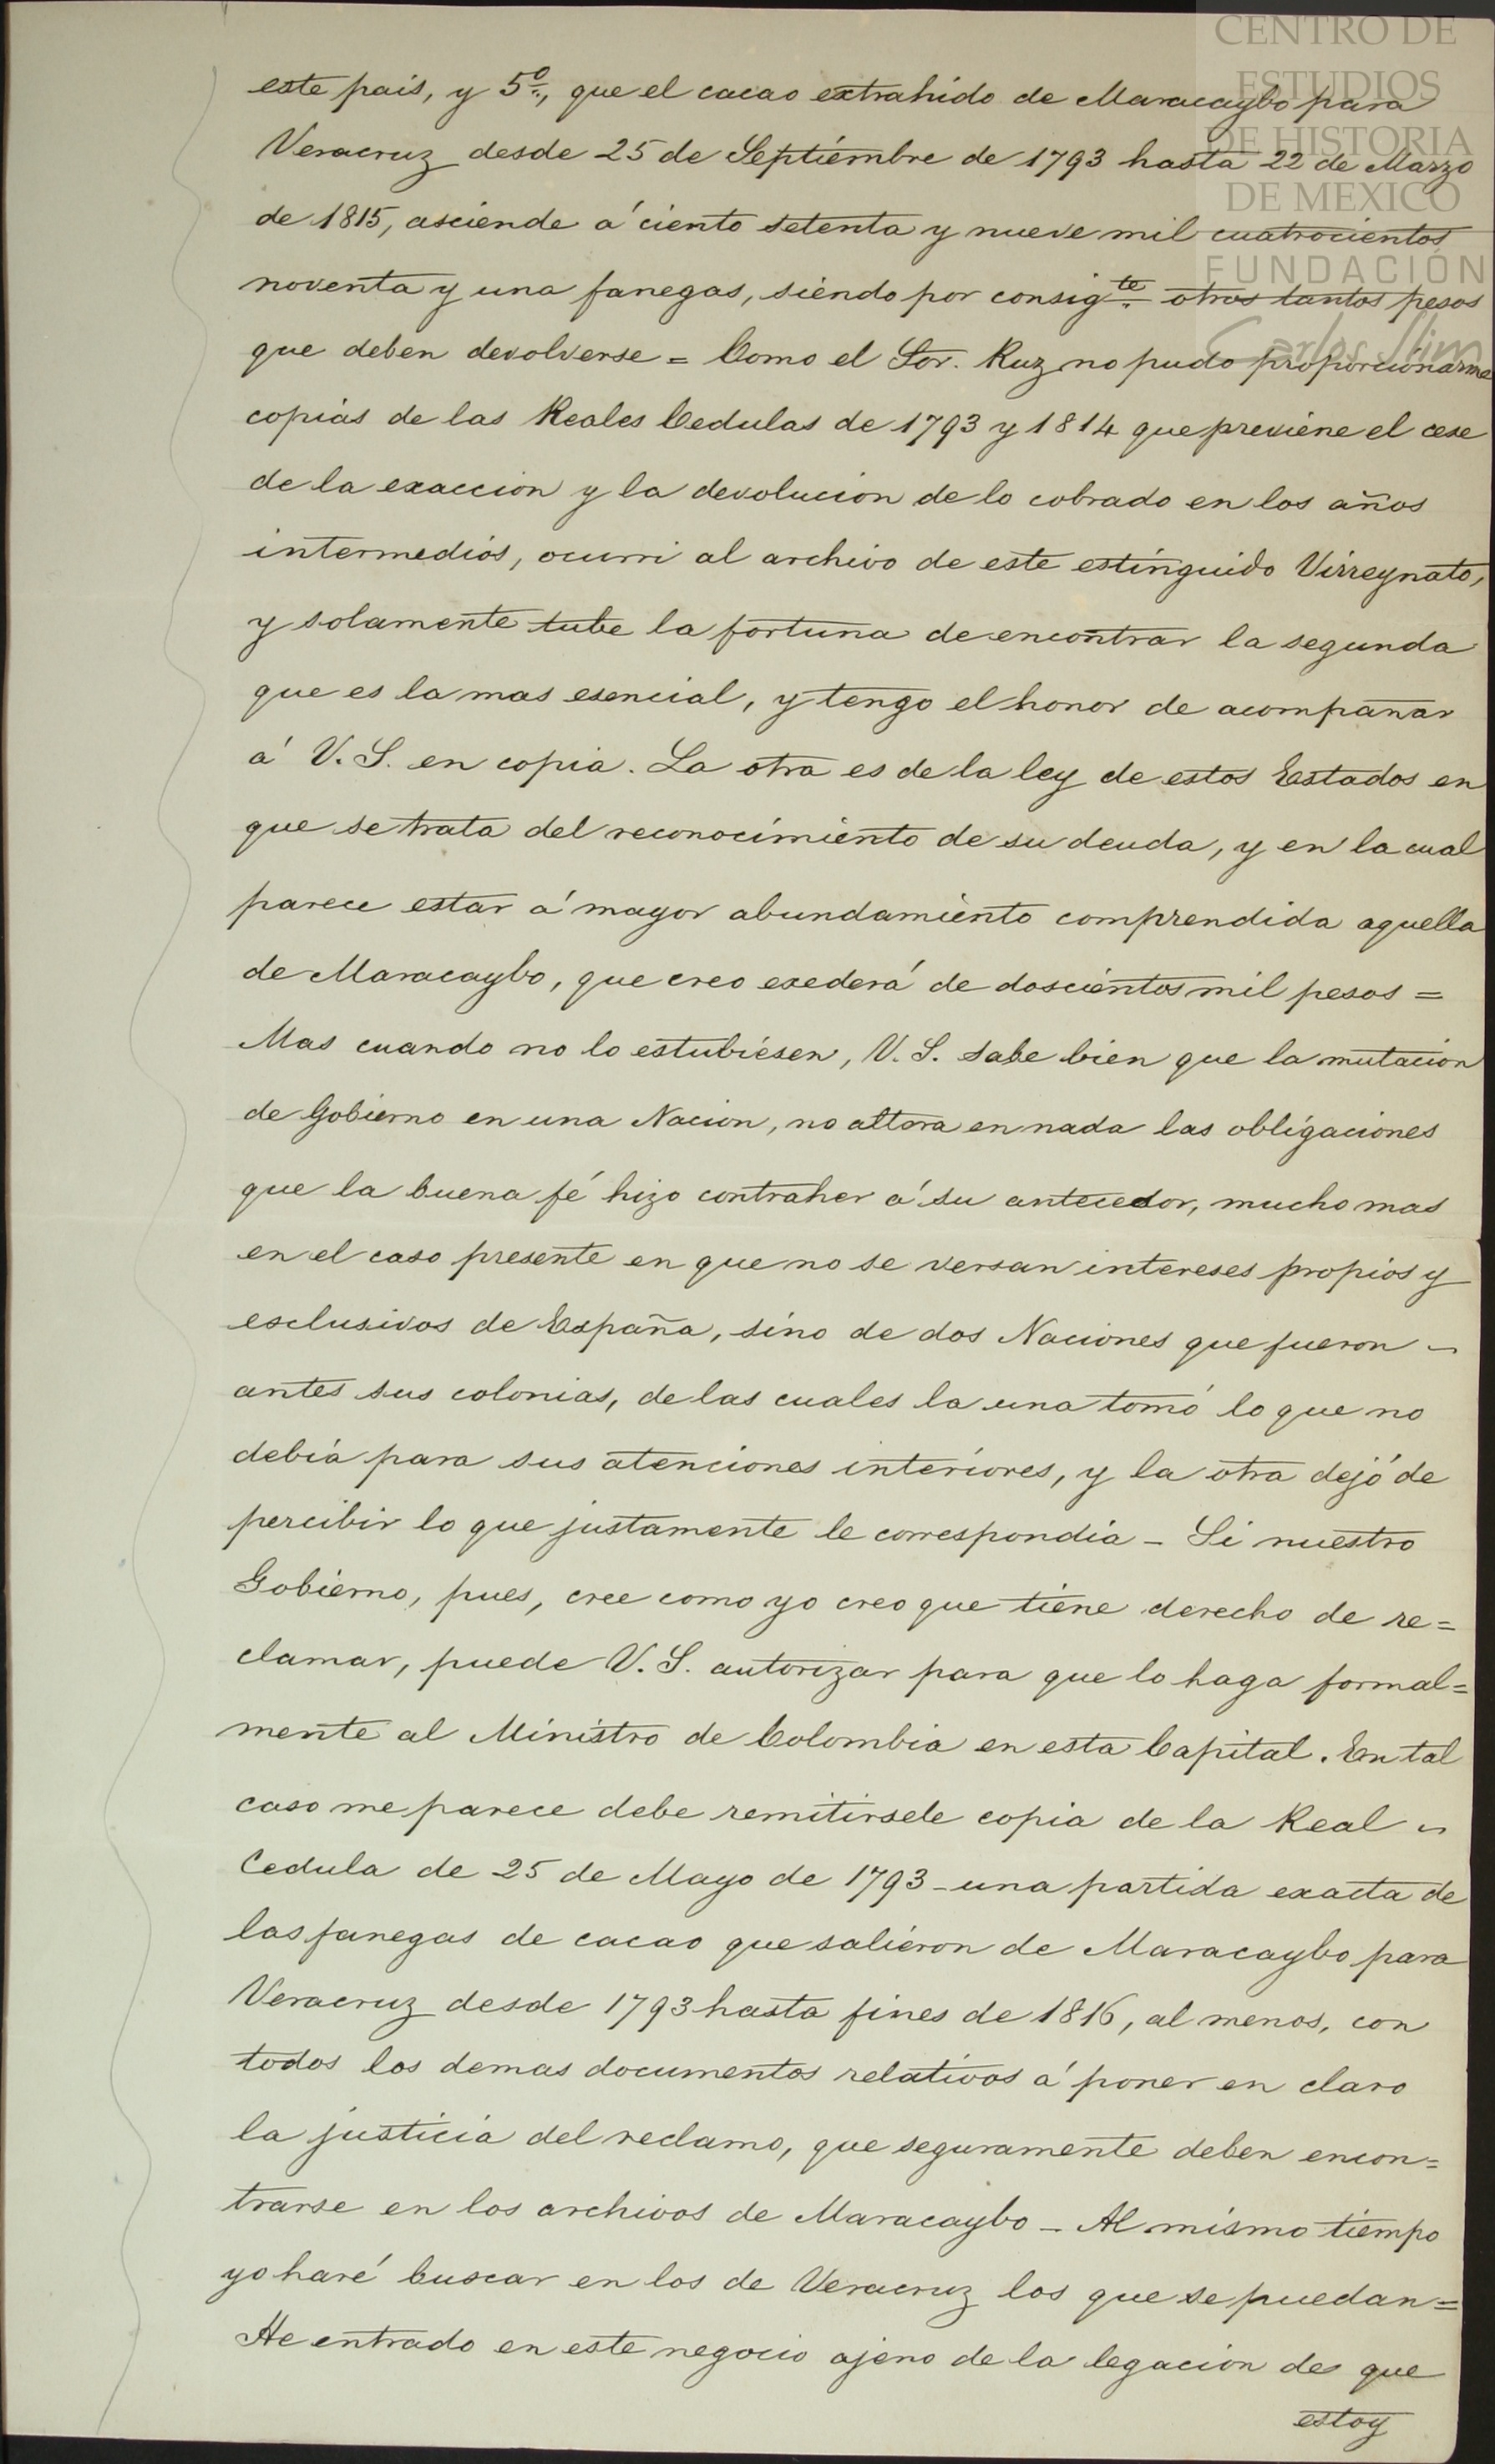 CENTRO DE
ESTUDIOS
DE HISTORIA
DE MEXICO
FUNDACIÓN
Carlos Slim
este pais, y 5º, que el cacao extrahido de Maracaybo para
Veracruz desde 25 de Septiembre de 1793 hasta 22 de Marzo
de 1815, asciende á ciento setenta y nueve mil cuatrocientos
noventa y una fanegas, siendo por consigte otros tantos pesos
que deben devolverse = Como el Sor. Ruz no pudo proporcionarme
copias de las Reales Cedulas de 1793 y 1814 que previene el cese
de la exaccion y la devolucion de lo cobrado en los años
intermedios, ocurri al archivo de este estinguido Virreynato,
y solamente tube la fortuna de encontrar la segunda
que es la mas esencial, y tengo el honor de acompañar
á V. S. en copia. La otra es de la ley de estos Estados en
que se trata del reconocimiento de su deuda, y en la cual
parece estar á mayor abundamiento comprendida aquella
de Maracaybo, que creo exederá de doscientos mil pesos =
Mas cuando no lo estubiesen, V. S. sabe bien que la mutacion
de Gobierno en una Nacion, no altera en nada las obligaciones
que la buena fé hizo contraher á su antecesor, mucho mas
en el caso presente en que no se versan intereses propios y
esclusivos de España, sino de dos Naciones que fueron -
antes sus colonias, de las cuales la una tomó lo que no
debia para sus atenciones interiores, y la otra dejó de
percibir lo que justamente le correspondia - Si nuestro
Gobierno, pues, cree como yo creo que tiene derecho de re=
clamar, puede V. S. autorizar para que lo haga formal=
mente al Ministro de Colombia en esta Capital. En tal
caso me parece debe remitirsele copia de la Real -
Cedula de 25 de Mayo de 1793 - una partida exacta de
las fanegas de cacao que salieron de Maracaybo para
Veracruz desde 1793 hasta fines de 1816, al menos, con
todos los demas documentos relativos á poner en claro
la justicia del reclamo, que seguramente deben encon=
trarse en los archivos de Maracaybo - Al mismo tiempo
yo haré buscar en los de Veracruz los que se puedan =
He entrado en este negocio ajeno de la legacion de que
estoy